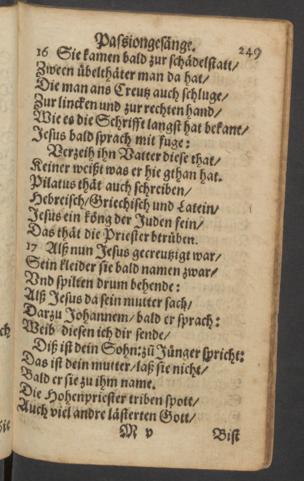 Passiongesänge. 249
16 Sie kamen bald zur schädelstatt/
Zween übelthäter man da hat/
Die man ans Creutz auch schluge/
Zur lincken und zur rechten hand/
Wie es die Schrifft langst hat bekant/
Jesus bald sprach mit fuge:
Verzeih ihn Vatter diese that/
Keiner weißt was er hie gthan hat.
Pilatus thät auch schreiben/
Hebreisch/Griechisch und Latein/
Jesus ein köng der Juden fein/
Das thät die Priester btrüben.
17 Alß nun Jesus gecreutzigt war/
Sein kleider sie bald namen zwar/
Vnd spilten drum behende:
Alß Jesus da sein mutter sach/
Darzu Johannem/bald er sprach:
Weib diesen ich dir sende/
Diß ist dein Sohn: zů Jünger spricht:
Das ist dein mutter/laß sie nicht/
Bald er sie zu ihm name.
Die Hohenpriester triben spott/
Auch viel andre lästerten Gott/
M v Bist